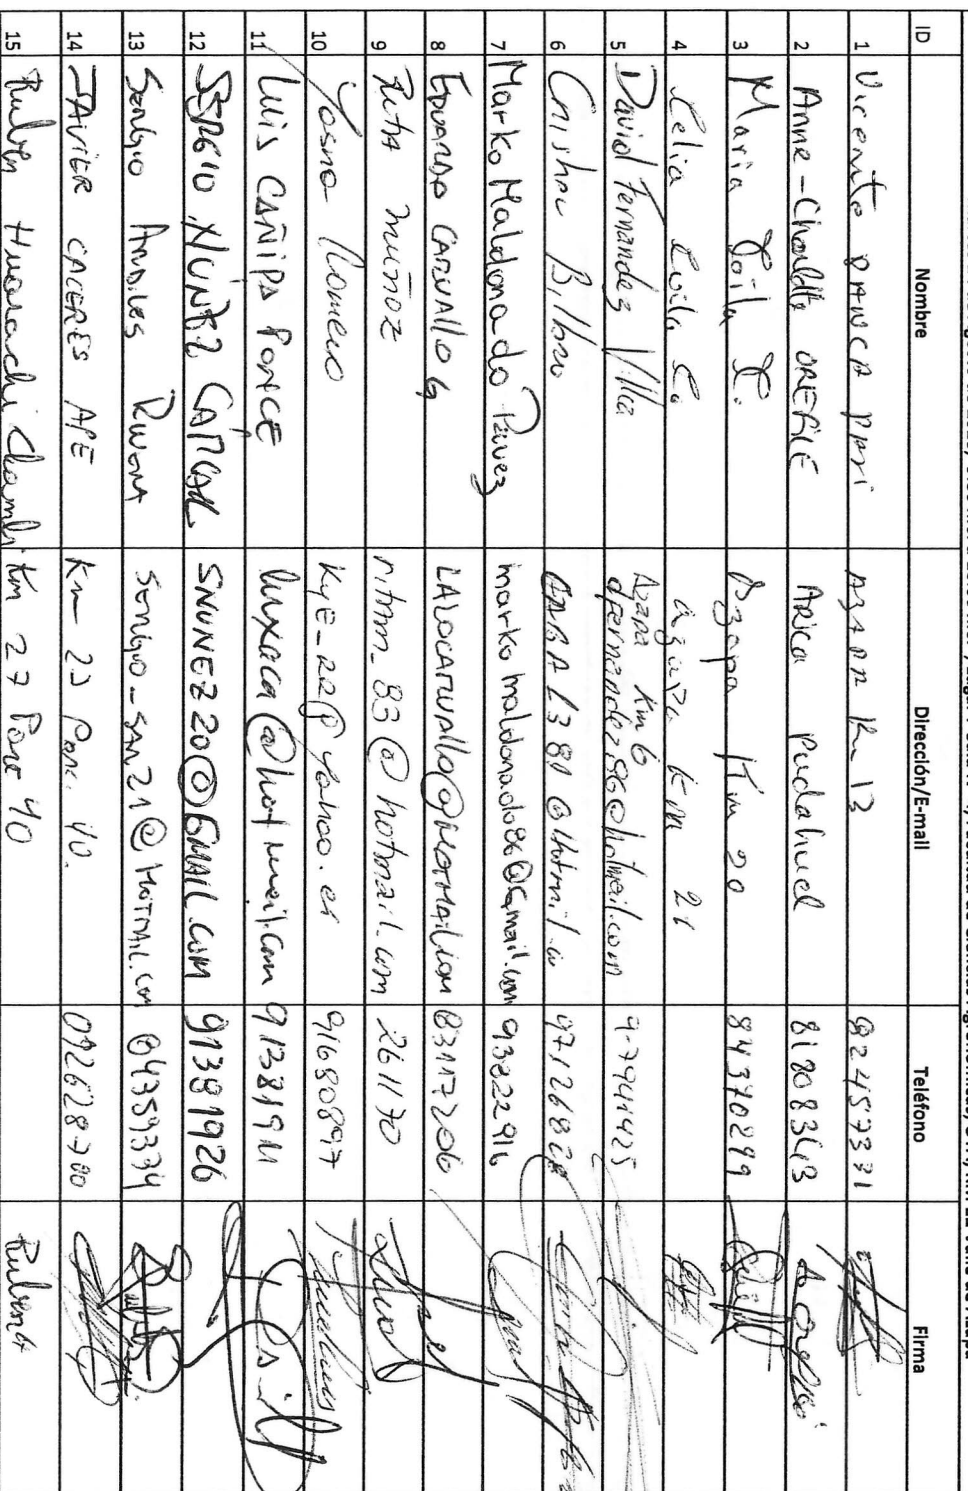 ID Nombre Dirección/E-mail Teléfono Firma
1 Vicente Km 13 82457331
2 Anne-Charlotte OREFICE Arica Pudahuel 81808363
3 Maria Azapa Km 20 84370299
4 Celia azapa Km 21
5 David Fernandez Villa Azapa Km 6
dfernandez.86@hotmail.com 9-7794425
6 Bilbao
7 Marko Maldonado Pavez markomaldonado86@gmail.com 93822916
8 EDUARDO CARVALLO G LALOCARVALLO@HOTMAIL.COM 83117206
9 Rita muñoz ritam_83@hotmail.com 261170
10 Yasna Romero Kye_22@yahoo.es 91680897
11 Luis CAÑIPA PONCE luxaca@hotmail.com
12 SERGIO NUÑEZ SNUNEZ20@GMAIL.COM 91391926
13 Sergio Andiles Rivera Sergio_SAM21@HOTMAIL.com 84359334
14 JAVIER CACERES APE Km 27 Parc. 40. 092628700
15 Ruben Huarachi Chambi Km 27 Parc 40 Ruben